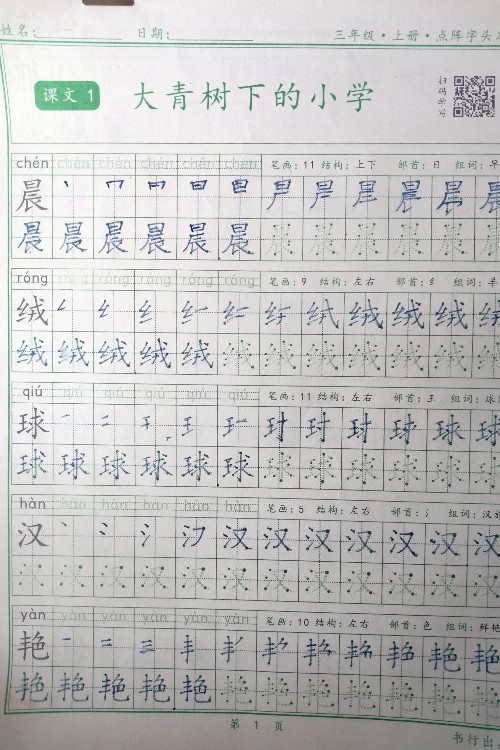 姓名： 日期： 三年级·上册·点阵字头
扫码学写
课文 1 大青树下的小学
chén chén chén chén chén chén 笔画：11 结构：上下 部首：日 组词：早
晨
晨 晨 晨 晨 晨 晨
róng róng róng róng róng róng 笔画：9 结构：左右 部首：纟 组词：羊
绒
绒 绒 绒 绒 绒
qiú qiú qiú qiú qiú qiú 笔画：11 结构：左右 部首：王 组词：球
球
球 球 球 球 球 球
hàn hàn hàn hàn hàn hàn 笔画：5 结构：左右 部首：氵 组词：汉族
汉 汉 汉 汉 汉 汉 汉 汉 汉
yàn yàn yàn yàn yàn yàn 笔画：10 结构：左右 部首：色 组词：鲜艳
艳
艳 艳 艳 艳 艳 艳
第 1 页
书行出